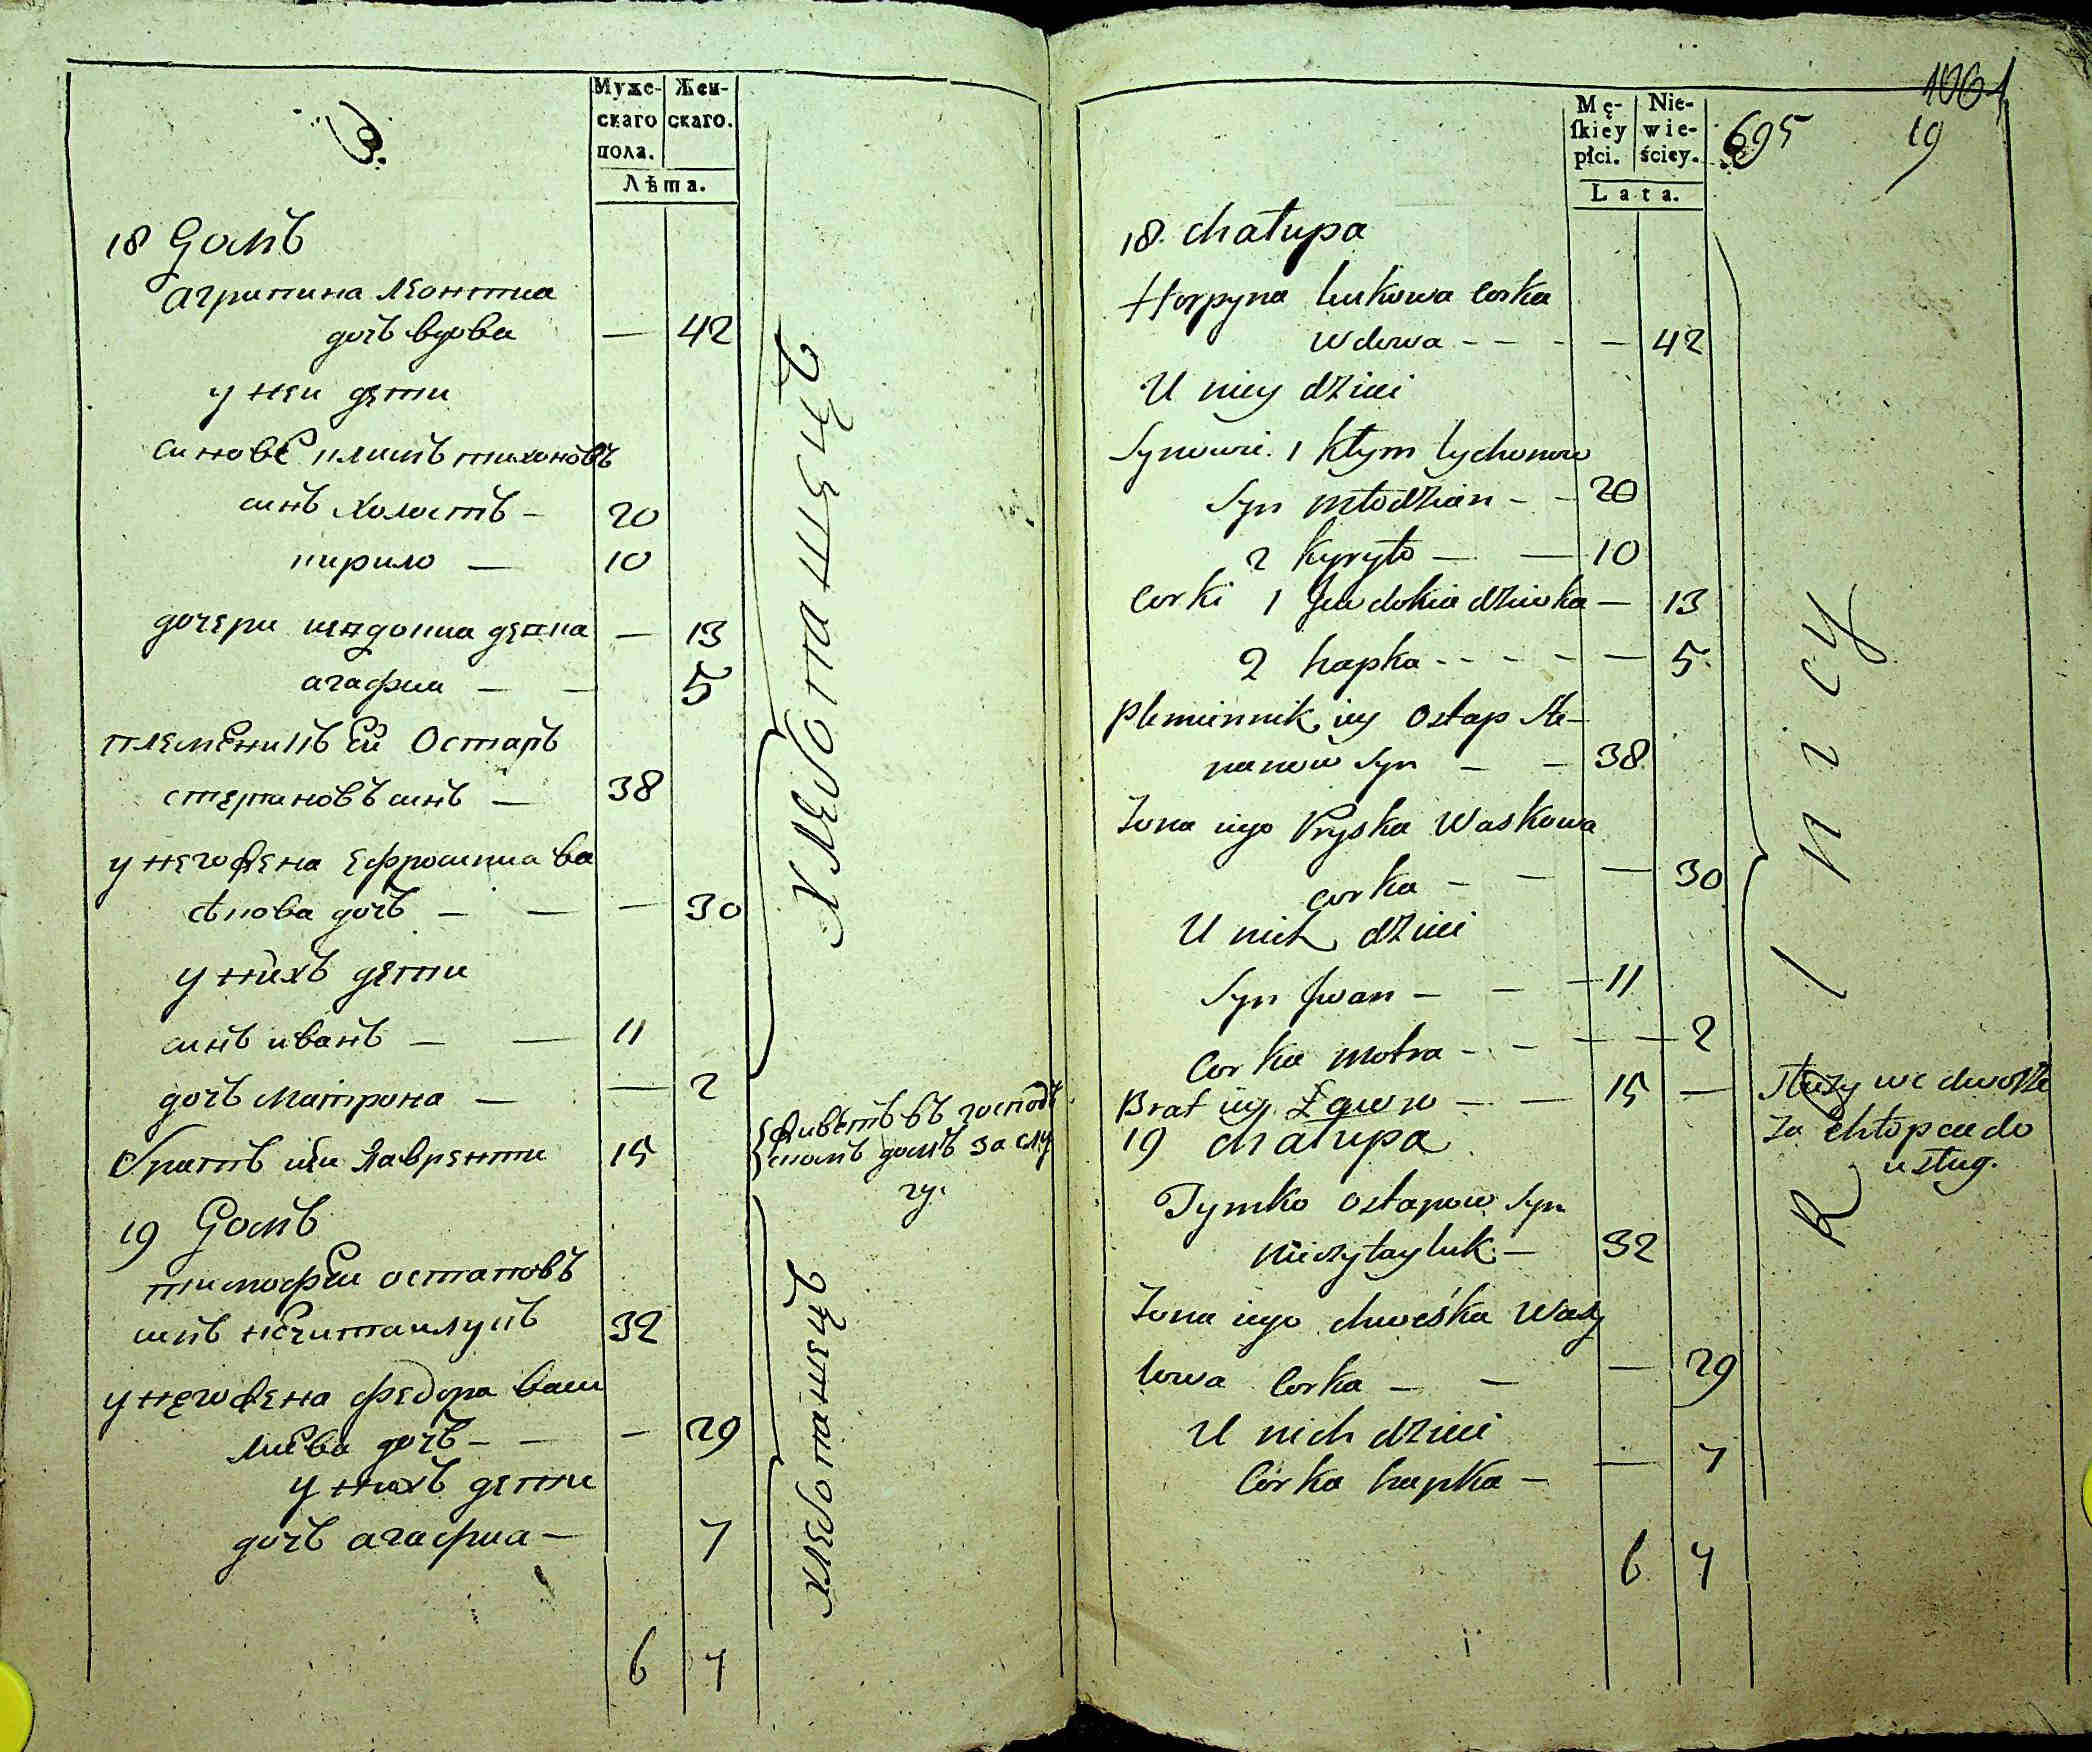 Муже- Жен-
скаго скаго.
пола.
Лѣта.
18 Домъ
агрипина леонтиа
дочъ вдова — 42
у неи дети
синове климъ тихоновъ
синъ холостъ - 20
кирило — 10
дочери иевдокиа девка — 13
агафиа — — 5
племеникъ еи Остапъ
степановъ синъ — 38
у него жена ефросиниа ва
скова дочъ — — — 30
у нихъ дети
синъ иванъ — — 11
дочъ матрона — — 2
братъ еи лаврентии 15
живетъ въ господ
скомъ домѣ за слу
гу.
хлебопашецъ
19 Домъ
тимофеи остаповъ
синъ нечитаилукъ 32
у него жена федора васи
лиева дочъ - — - 29
у нихъ дети
дочъ агафиа — 7
хлебопашецъ
6 7
Mę- Nie-
ſkiey wie-
płci. ściey.
Lata.
695
19
18. chałupa
Horpyna lukowa corka
wdowa - - - — 42
U niey dzieci
Synowie. 1 kłym tychonow
Syn młodzian - - 20
2 kyryło — — 10
Corki 1 Jewdokia dziewka — 13
2 hapka - - - - — 5.
Plemiennik iey Ostap Ste-
panow Syn — — 38
Zona iego Pryska Waskowa
corka - — — 30
U nich dzieci
Syn Jwan — — - 11
Corka motra - - — — — 2
Brat iey Ławro — — 15 —
Słuzy we dworze
za chłopca do
usług.
19 chałupa
Tymko Ostapow Syn
Nieczytayluk — 32
Zona iego chweśka Wasy
lowa Corka — — — 29
U nich dzieci
Corka hapka — — 7
Rolnicy
6 7